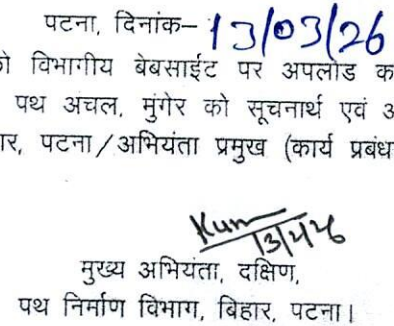 पटना, दिनांक– 13/03/26
विभागीय बेबसाईट पर अपलोड
पथ अंचल, मुंगेर को सूचनार्थ एवं
पटना/अभियंता प्रमुख (कार्य
मुख्य अभियंता, दक्षिण,
पथ निर्माण विभाग, बिहार, पटना।